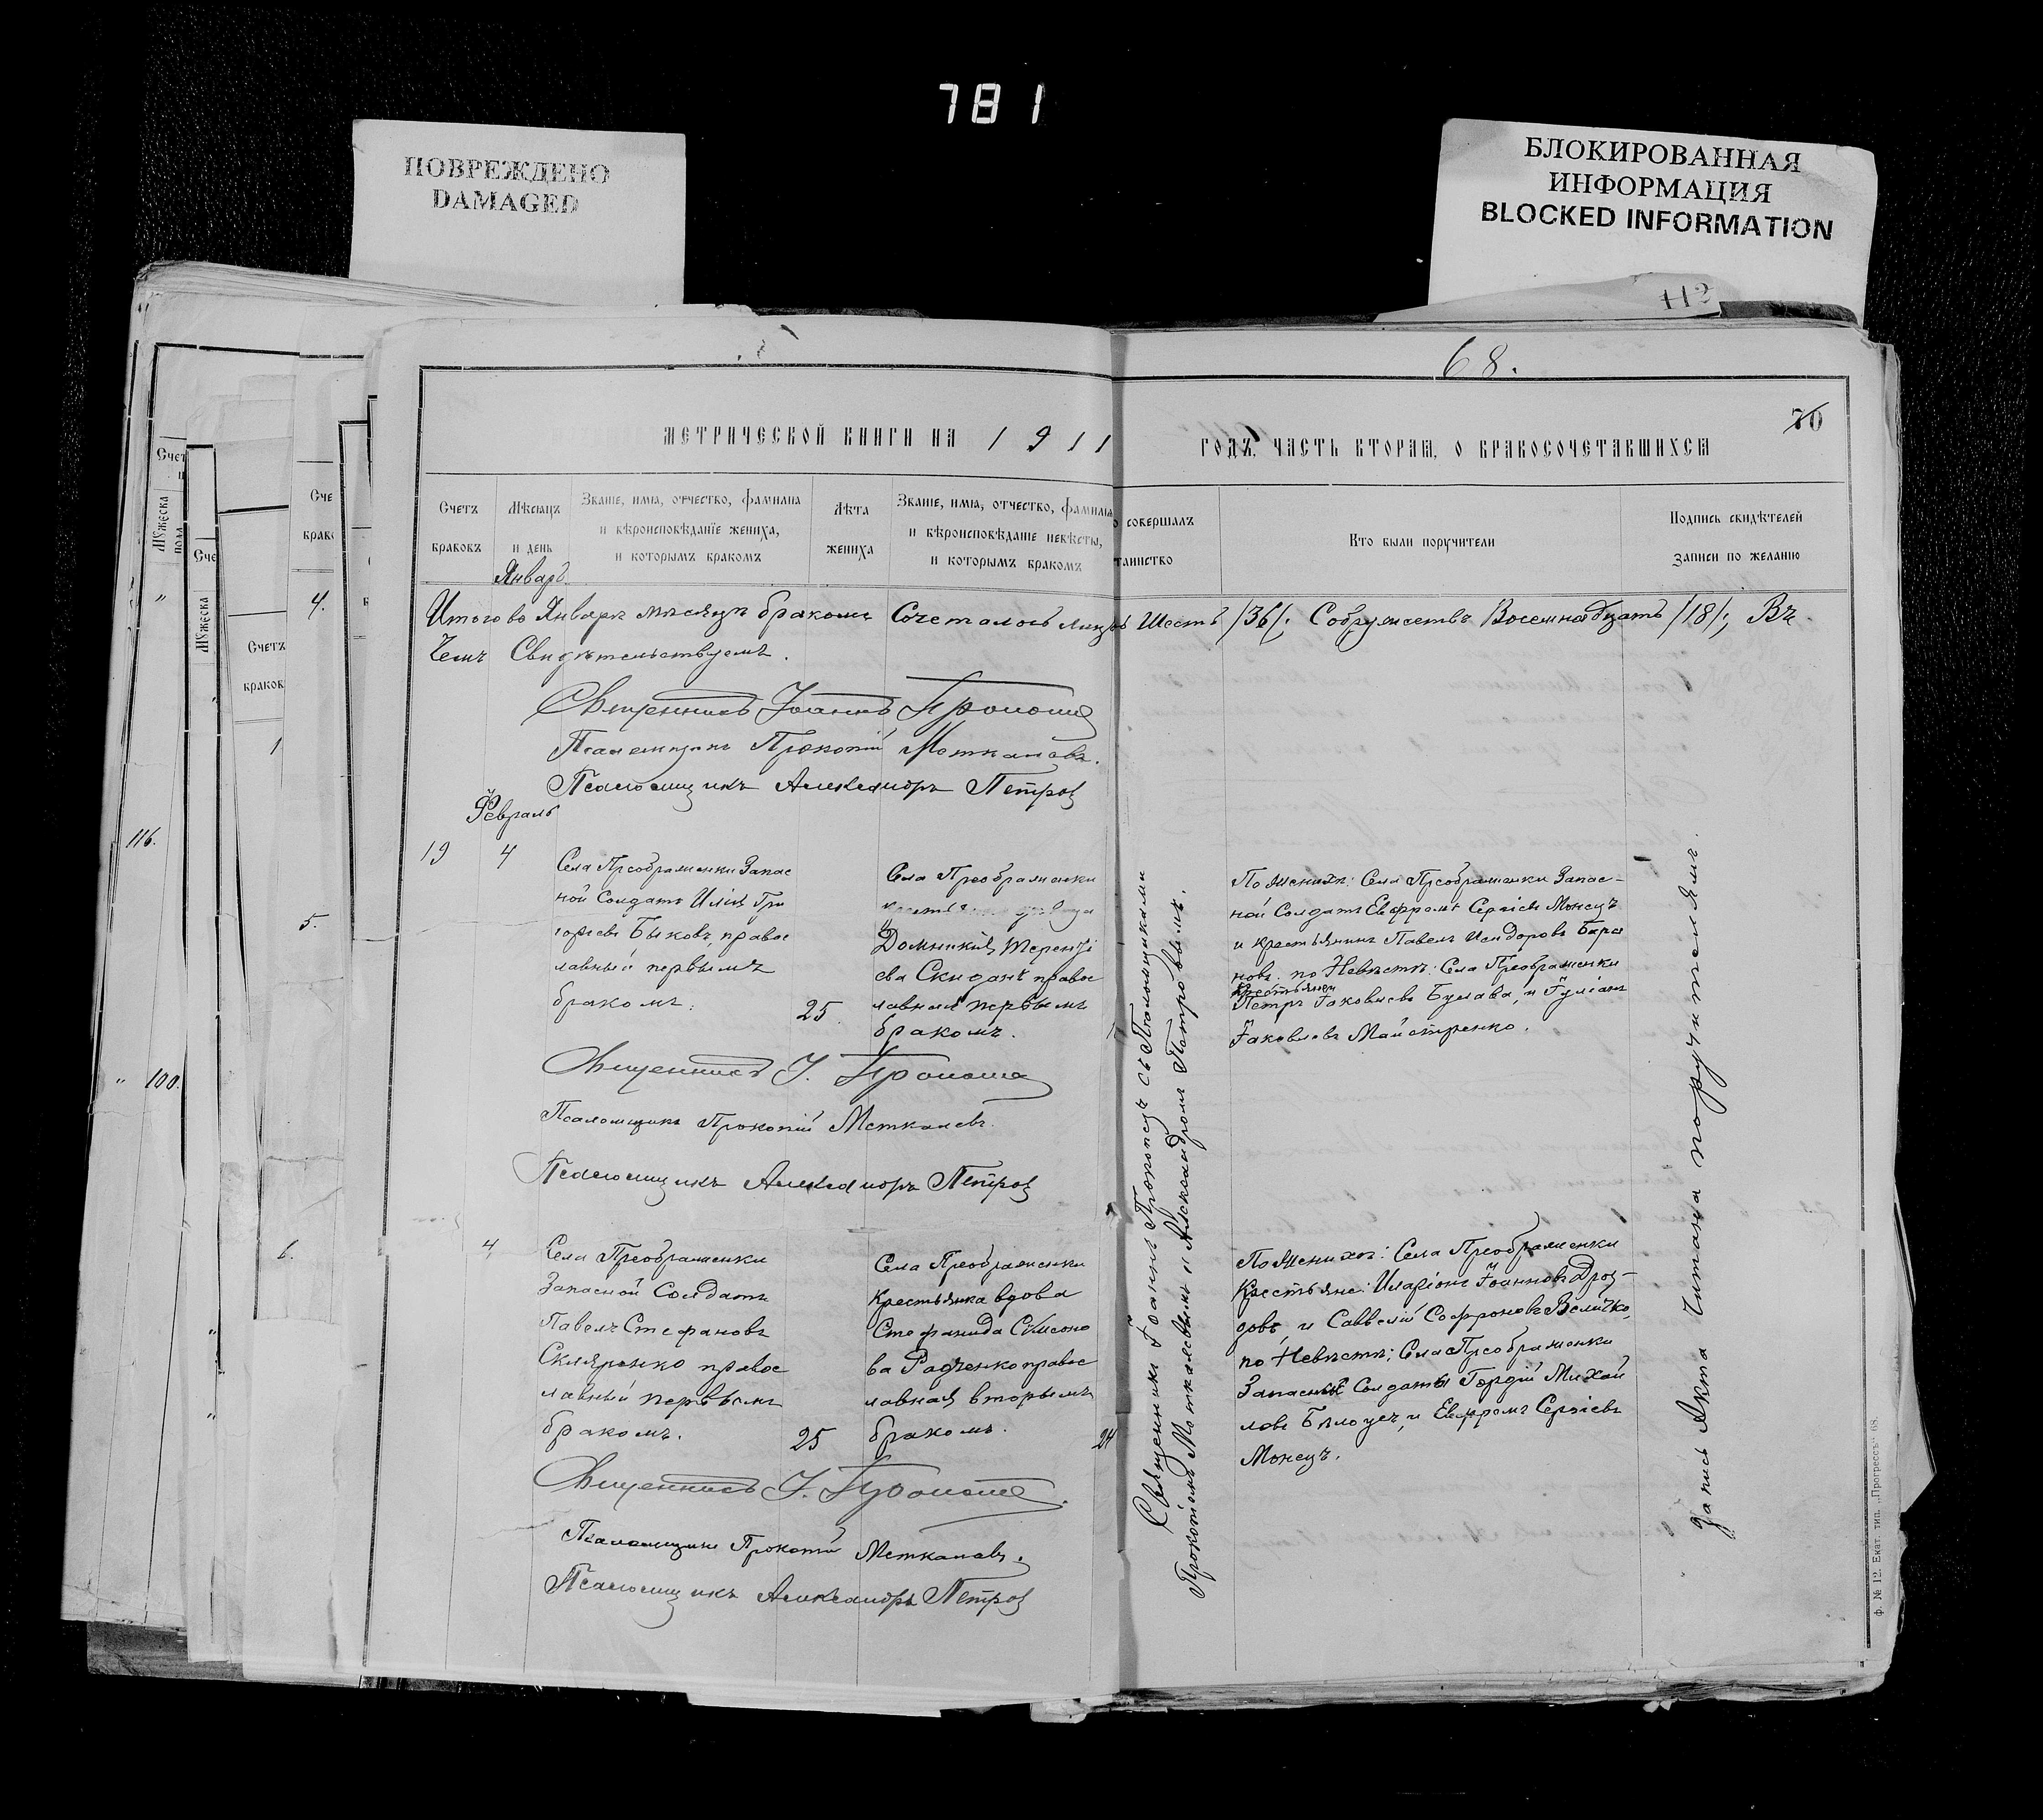 781
ПОВРЕЖДЕНО
DAMAGED
БЛОКИРОВАННАЯ
ИНФОРМАЦИЯ
BLOCKED INFORMATION
112
68.
70
МЕТРИЧЕСКОЙ КНИГИ НА 1911 ГОДЪ, ЧАСТЬ ВТОРАЯ, О БРАКОСОЧЕТАВШИХСЯ
Счетъ
браковъ
Мѣсяцъ
и день
Январь
Званіе, имя, отчество, фамилія
и вѣроисповѣданіе жениха,
и которымъ бракомъ
Лѣта
жениха
Званіе, имя, отчество, фамилія
и вѣроисповѣданіе невѣсты,
и которымъ бракомъ
о совершалъ
таинство
Кто были поручители
Подпись свидѣтелей
записи по желанію
Итого во Январѣ мѣсяцѣ бракомъ Сочеталось лицъ Шесть /36/; Супружествъ Восемнадцать /18/; Въ
чемъ Свидѣтельствуемъ.
Священникъ Іоаннъ
Псаломщикъ Прокопій Меткалевъ.
Псаломщикъ Александръ Петров
Февраль
19
4
Села Преображенки Запас
ной Солдатъ Илія Гри
горіевъ Быковъ, правос
лавный первымъ
бракомъ.
25
Села Преображенки
Домникія Теренті
ева Скиданъ правос
лавная первымъ
бракомъ.
По Женихѣ: Села Преображенки Запас-
ной Солдатъ Евфремъ Сергіевъ Монецъ
и крестьянинъ Павелъ Исидоровъ Бара
новъ. по Невѣстѣ: Села Преображенки
Крестьяне
Петръ Іаковлевъ Булава, и Іуліанъ
Іаковлевъ Майстренко.
Священникъ І.
Псаломщикъ Прокопій Меткалевъ.
Псаломщикъ Александръ Петров
4
Села Преображенки
Запасной Солдатъ
Павелъ Стефановъ
Скляренко правос
лавный первымъ
бракомъ.
25
Села Преображенки
Крестьянка вдова
Стефанида Симоно
ва Радченко правос
лавная вторымъ
бракомъ.
24
По Женихѣ: Села Преображенки
Крестьяне: Иларіонъ Іоанновъ Дроз-
довъ, и Савелій Софроновъ Величко,
по Невѣстѣ: Села Преображенки
Запасные Солдаты Гордій Михай
ловъ Бѣлоусъ, и Евфремъ Сергіевъ
Монецъ.
Священникъ І.
Псаломщикъ Прокопій Меткалевъ.
Псаломщикъ Александръ Петров
Священникъ Іоаннъ Прокопецъ съ Псаломщиками
Прокопіемъ Меткалевымъ и Александромъ Петровымъ.
Запись Акта читана поручителямъ.
Ф. № 12. Екат. тип. „Прогрессъ“ 68.
Мужеска
пола
Счетъ
браков
116.
100.
4.
1
5.
6.